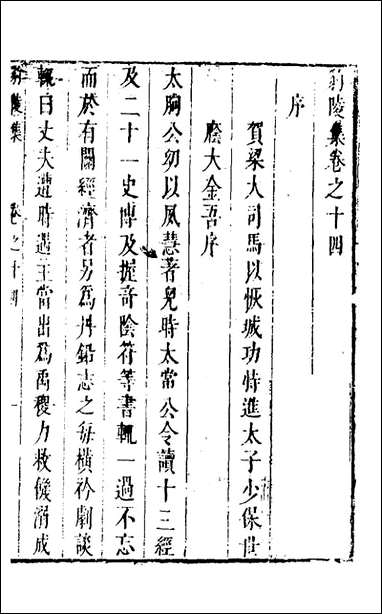 蒟陵集卷之十四
序
賀梁大司馬以恢城功特進太子少保世
廕大金吾序
太胸公初以夙慧著兒時太常公令讀十三經
及二十一史博及握奇陰符等書輒一過不忘
而於有關經濟者另為丹鉛志之每橫衿劇談
輒曰丈夫遭時遇主當出為禹稷力救饑溺成
陵集 卷之十四 一